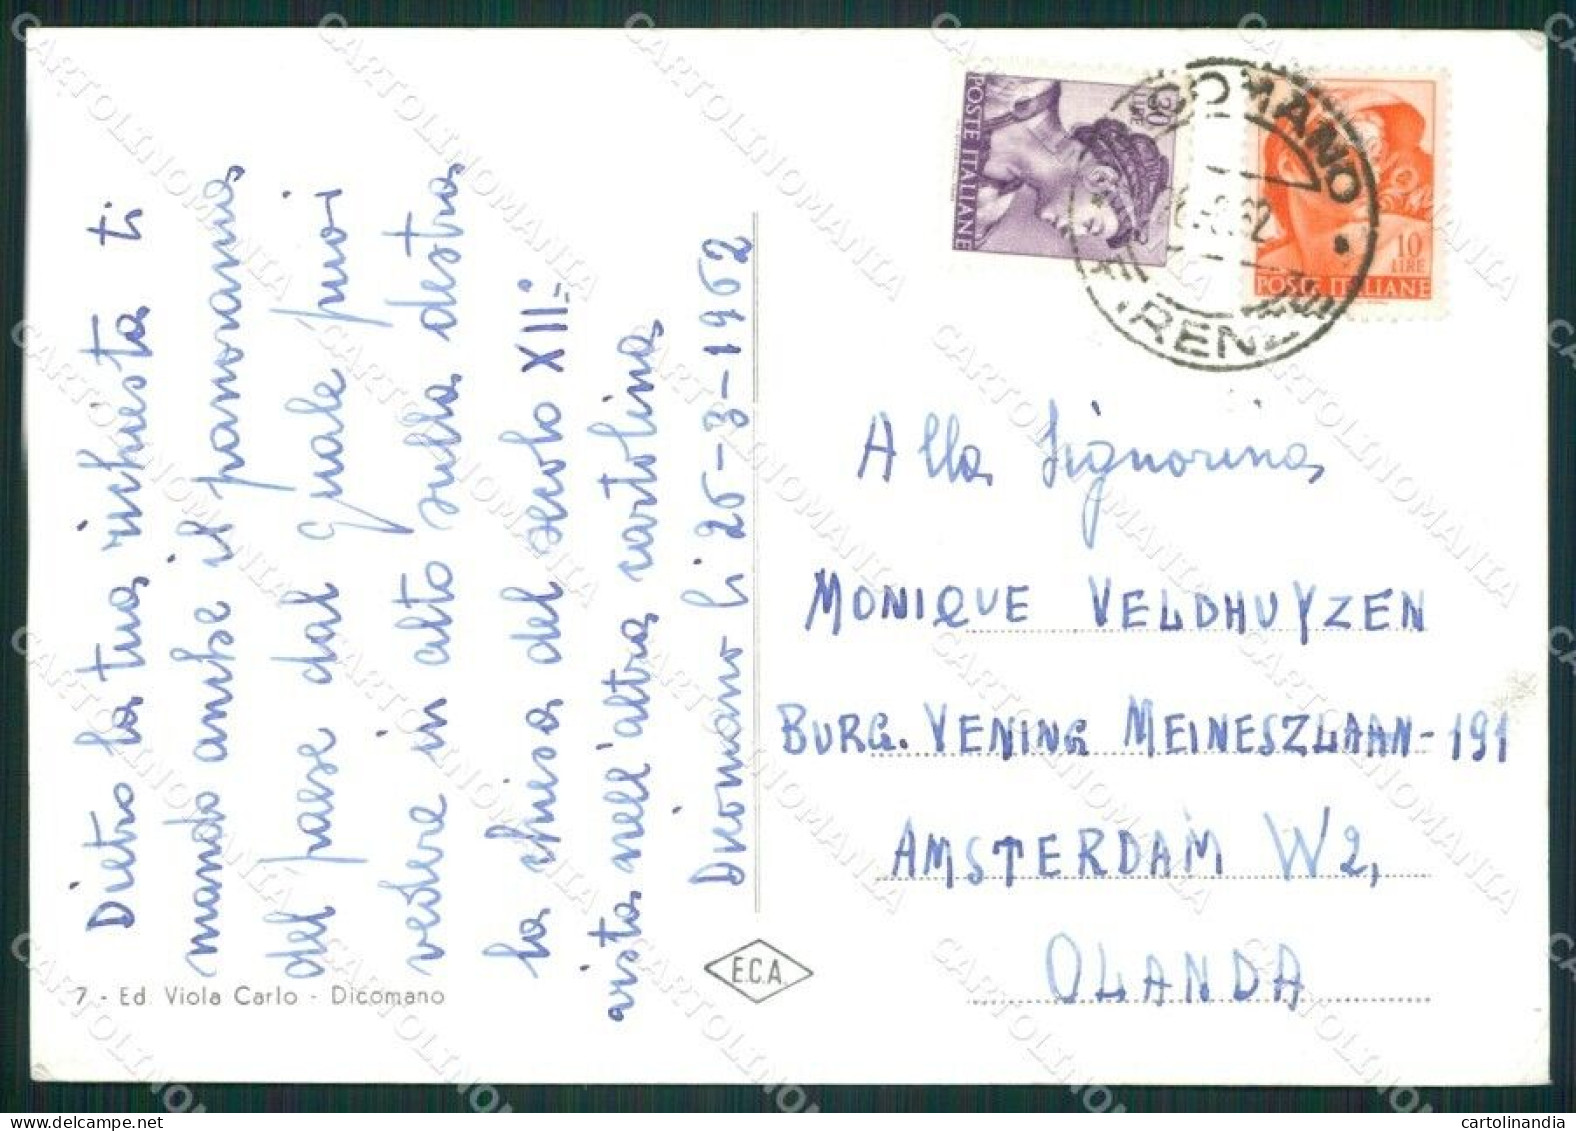 Dietro la tua richiesta ti
mando anche il panorama
del paese dal quale puoi
vedere in alto sulla destra
la chiesa del secolo XII:-
vista nell'altra cartolina
Dicomano li 26-3-1962
7 - Ed. Viola Carlo - Dicomano
E.C.A.
POSTE ITALIANE
30 LIRE
10 LIRE
POSTE ITALIANE
COMANO
62
FIRENZE
Alla Signorina
MONIQUE VELDHUYZEN
BURG. VENING MEINESZLAAN-191
AMSTERDAM W2,
OLANDA
CARTOLINOMANIA
cartolinandia